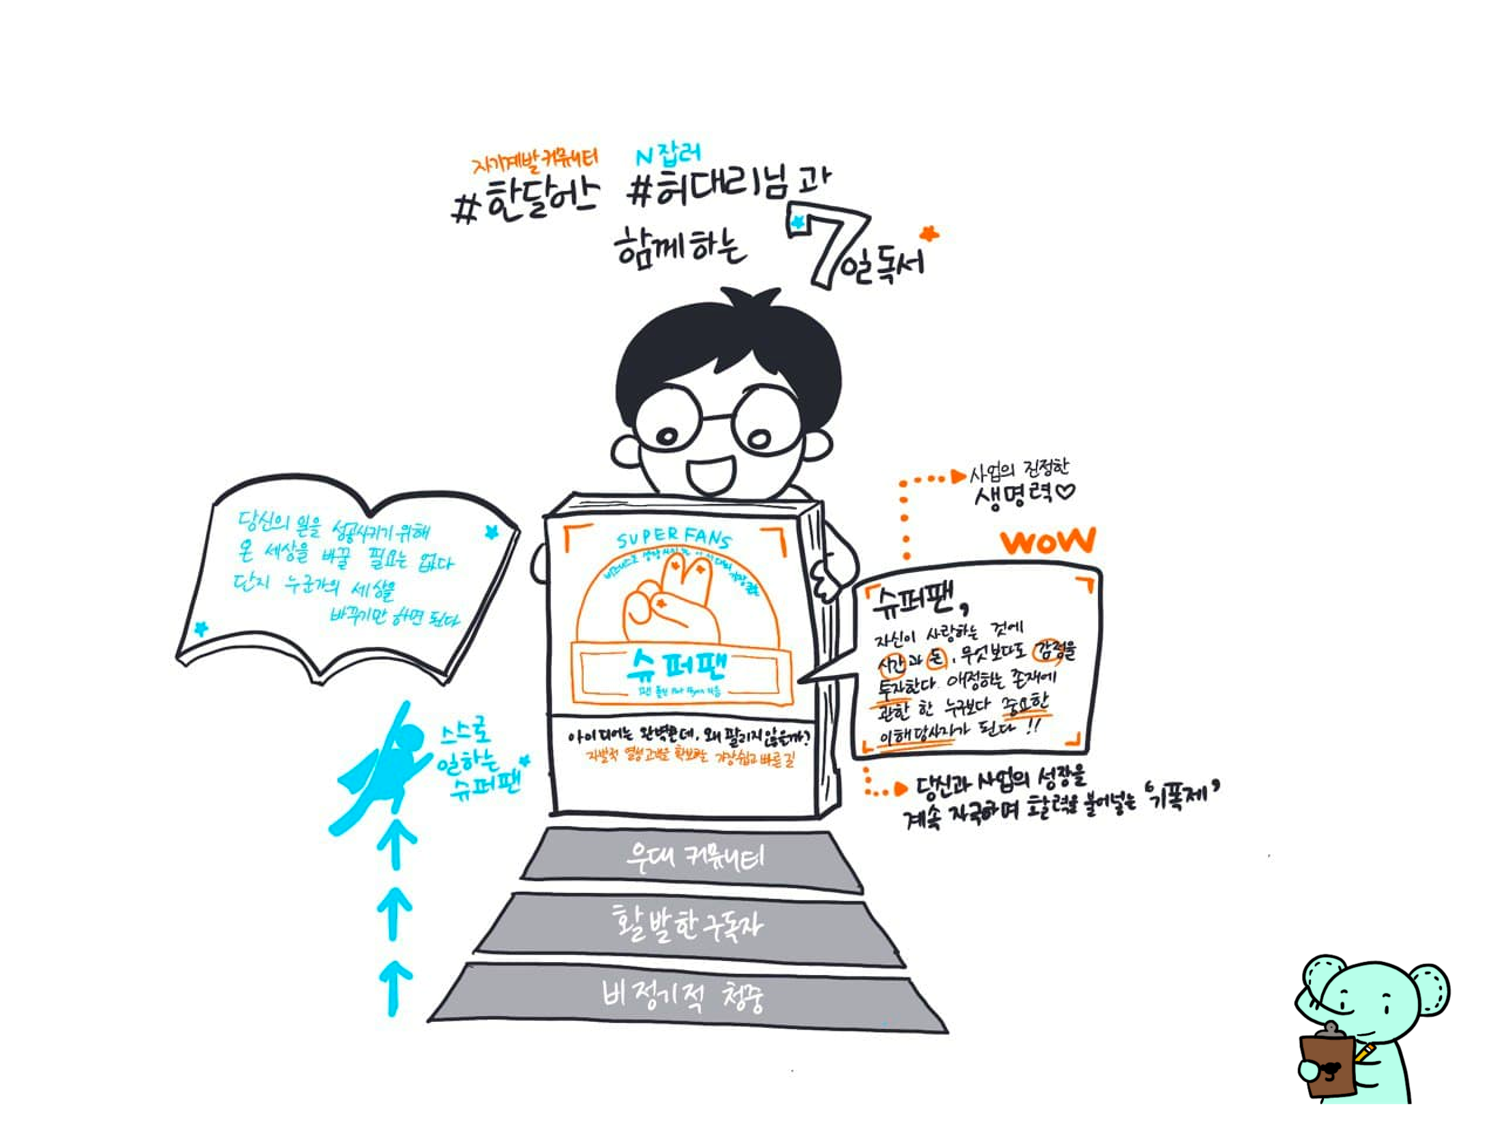 자기계발 커뮤니티 N잡러
#한달어스 #허대리님과
함께하는 7일 독서
당신의 일을 성공시키기 위해
온 세상을 바꿀 필요는 없다
단지 누군가의 세상을
바꾸기만 하면 된다
SUPER FANS
슈퍼팬
팻 플린 Pat Flynn 지음
아이디어는 완벽한데, 왜 팔리지 않을까?
자발적 열성 고객을 확보하는 가장 쉽고 빠른 길
사업의 진정한
생명력♡
WOW
슈퍼팬,
자신이 사랑하는 것에
시간과 돈, 무엇보다도 감정을
투자한다. 애정하는 존재에
관한 한 누구보다 중요한
이해당사자가 된다!!
당신과 사업의 성장을
계속 자극하며 활력을 불어넣는 '기폭제'
스스로
일하는
슈퍼팬
우대 커뮤니티
활발한 구독자
비정기적 청중